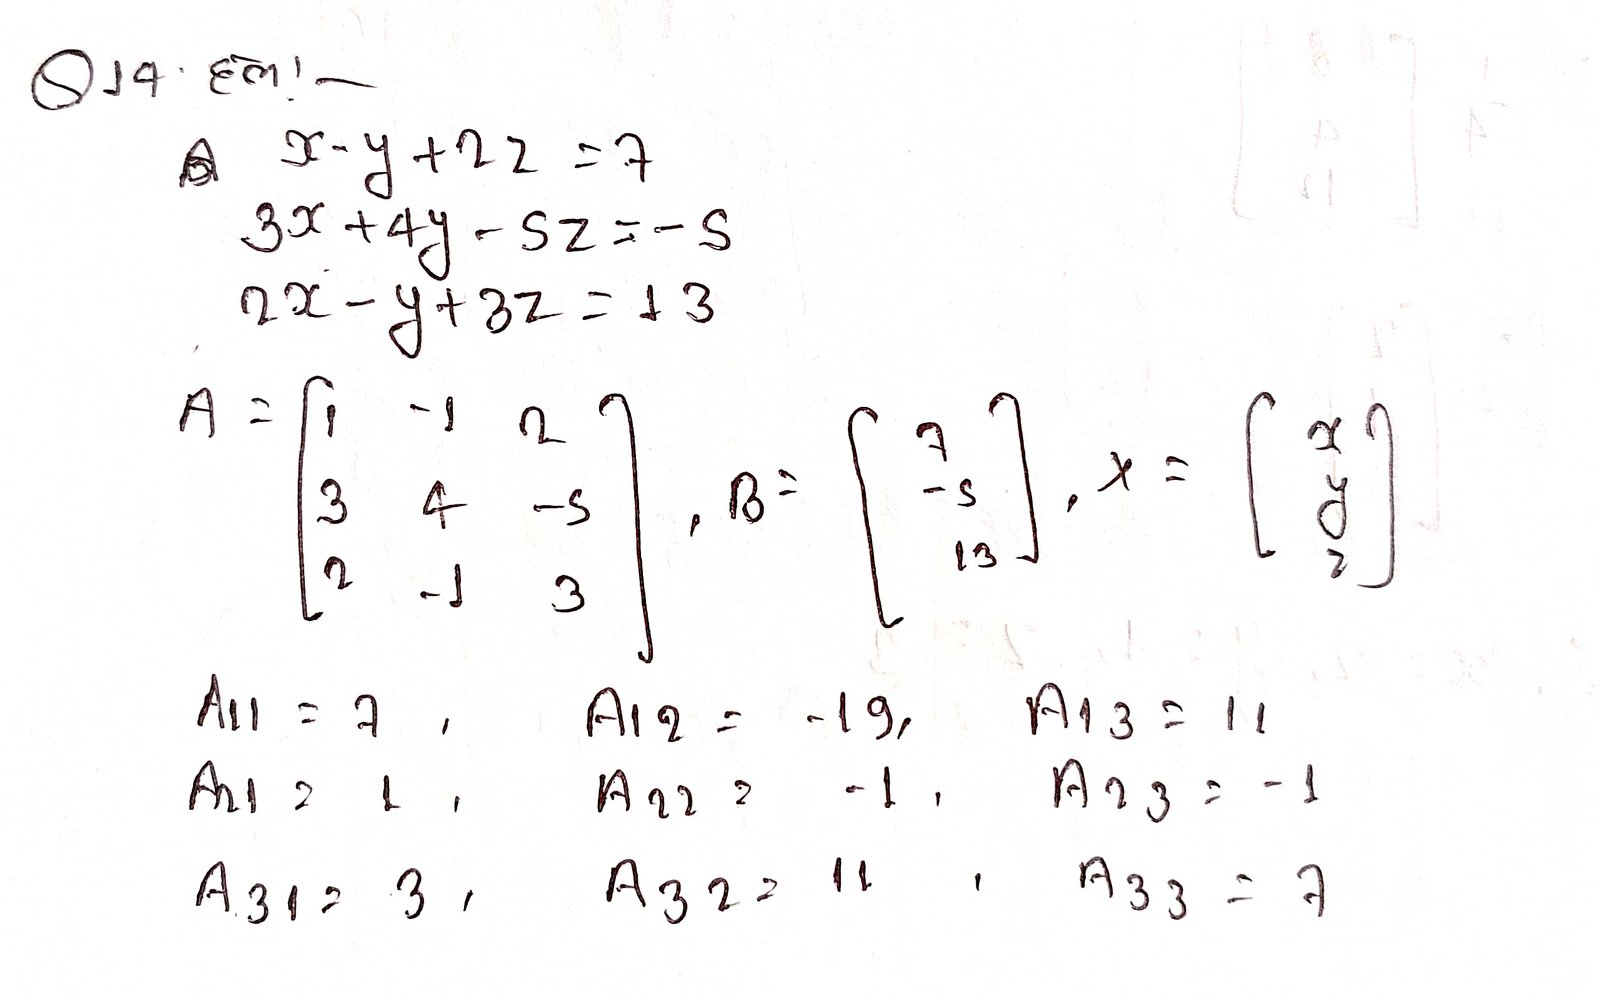 Q14. हल!—
x-y+2z=7
3x+4y-5z=-5
2x-y+3z=13
A = [1 -1 2
3 4 -5
2 -1 3], B= [7
-5
13], X = [x
y
z]
A11 = 7, A12 = -19, A13 = 11
A21 = 1, A22 = -1, A23 = -1
A31 = 3, A32 = 11, A33 = 7